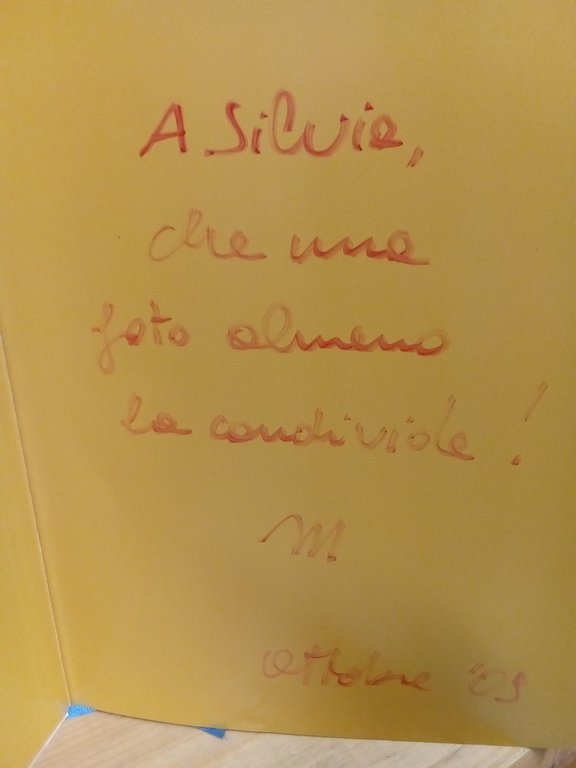 A Silvia,
che una
foto almeno
la condivide!
M
Ottobre '09